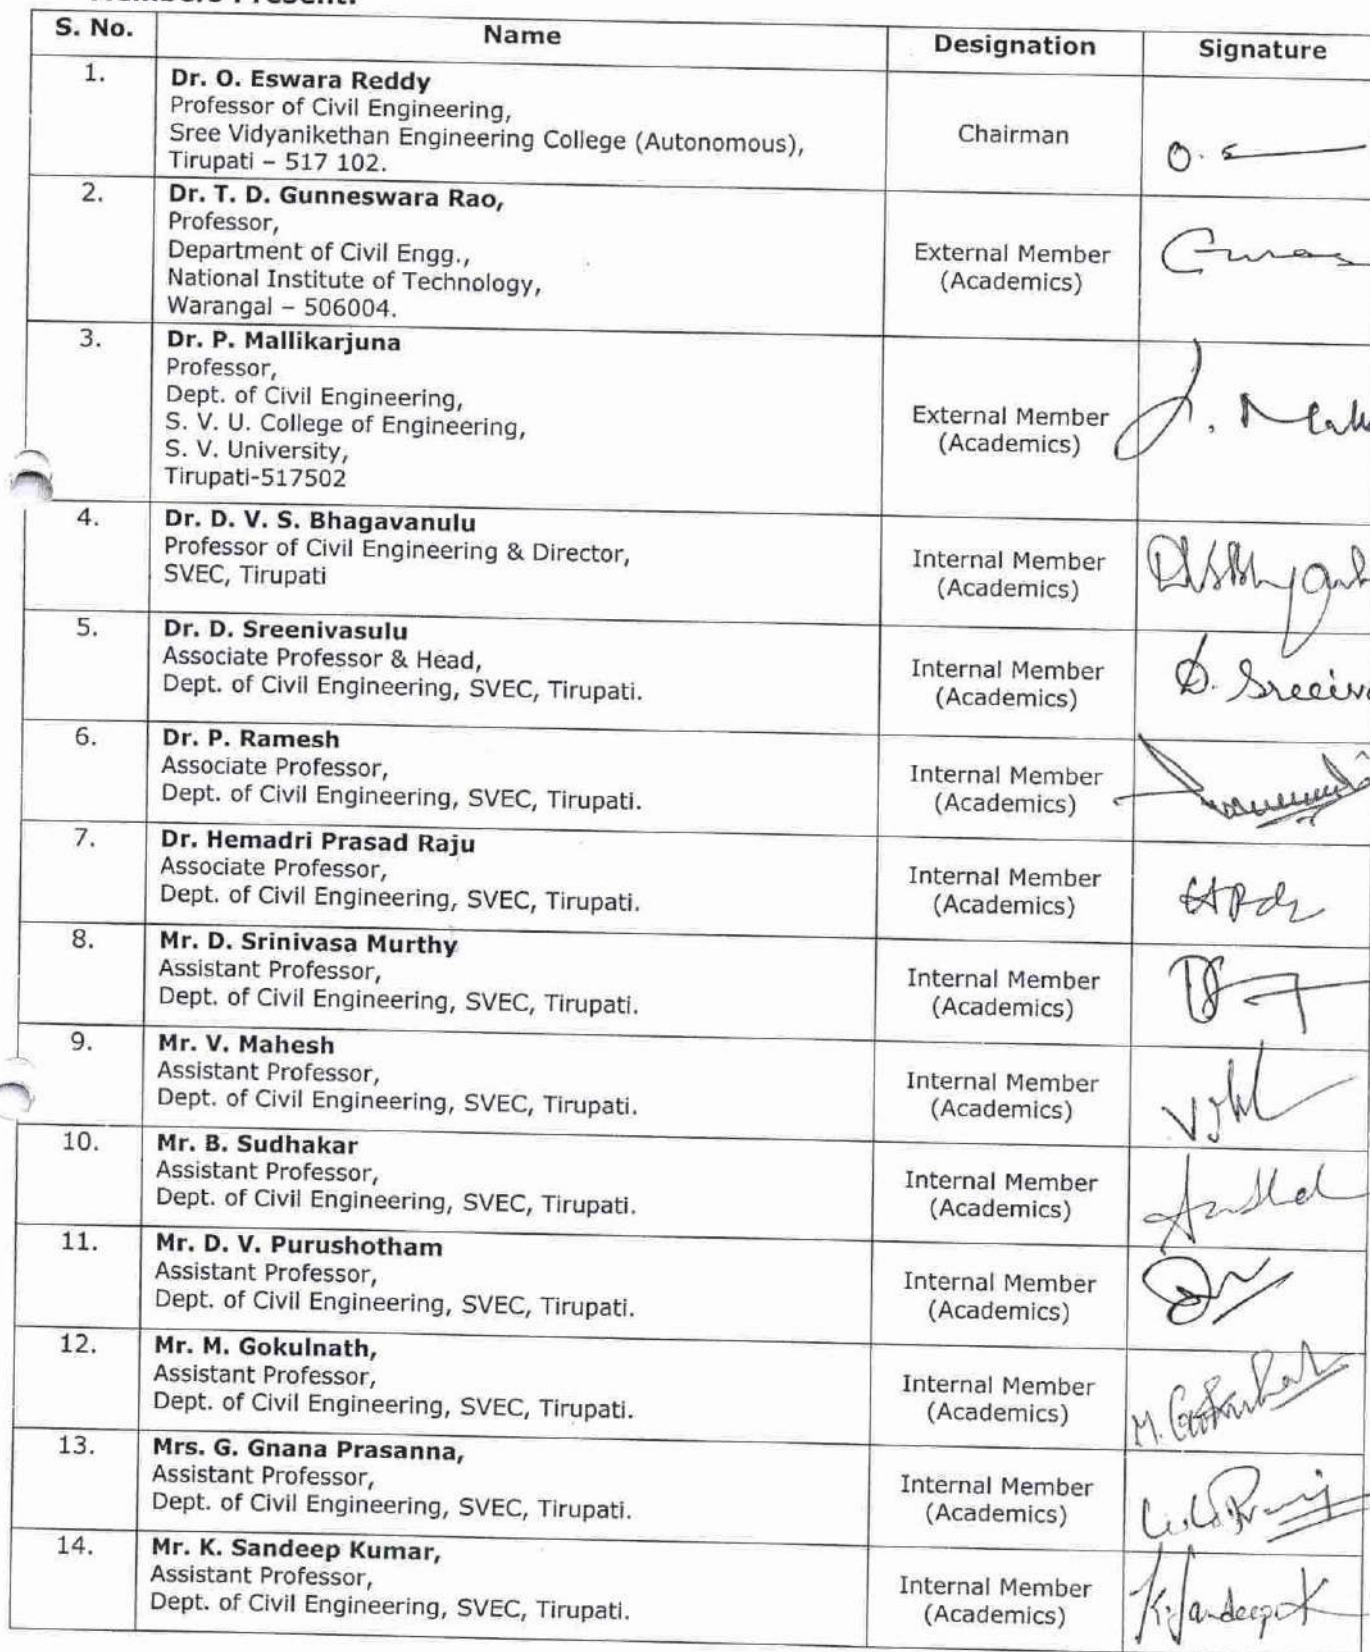 Members Present:
S. No. Name Designation Signature
1. Dr. O. Eswara Reddy
Professor of Civil Engineering,
Sree Vidyanikethan Engineering College (Autonomous),
Tirupati – 517 102.
Chairman
O. S
2. Dr. T. D. Gunneswara Rao,
Professor,
Department of Civil Engg.,
National Institute of Technology,
Warangal – 506004.
External Member
(Academics)
3. Dr. P. Mallikarjuna
Professor,
Dept. of Civil Engineering,
S. V. U. College of Engineering,
S. V. University,
Tirupati-517502
External Member
(Academics)
4. Dr. D. V. S. Bhagavanulu
Professor of Civil Engineering & Director,
SVEC, Tirupati
Internal Member
(Academics)
5. Dr. D. Sreenivasulu
Associate Professor & Head,
Dept. of Civil Engineering, SVEC, Tirupati.
Internal Member
(Academics)
6. Dr. P. Ramesh
Associate Professor,
Dept. of Civil Engineering, SVEC, Tirupati.
Internal Member
(Academics)
7. Dr. Hemadri Prasad Raju
Associate Professor,
Dept. of Civil Engineering, SVEC, Tirupati.
Internal Member
(Academics)
8. Mr. D. Srinivasa Murthy
Assistant Professor,
Dept. of Civil Engineering, SVEC, Tirupati.
Internal Member
(Academics)
9. Mr. V. Mahesh
Assistant Professor,
Dept. of Civil Engineering, SVEC, Tirupati.
Internal Member
(Academics)
10. Mr. B. Sudhakar
Assistant Professor,
Dept. of Civil Engineering, SVEC, Tirupati.
Internal Member
(Academics)
11. Mr. D. V. Purushotham
Assistant Professor,
Dept. of Civil Engineering, SVEC, Tirupati.
Internal Member
(Academics)
12. Mr. M. Gokulnath,
Assistant Professor,
Dept. of Civil Engineering, SVEC, Tirupati.
Internal Member
(Academics)
13. Mrs. G. Gnana Prasanna,
Assistant Professor,
Dept. of Civil Engineering, SVEC, Tirupati.
Internal Member
(Academics)
14. Mr. K. Sandeep Kumar,
Assistant Professor,
Dept. of Civil Engineering, SVEC, Tirupati.
Internal Member
(Academics)
K. Sandeep K